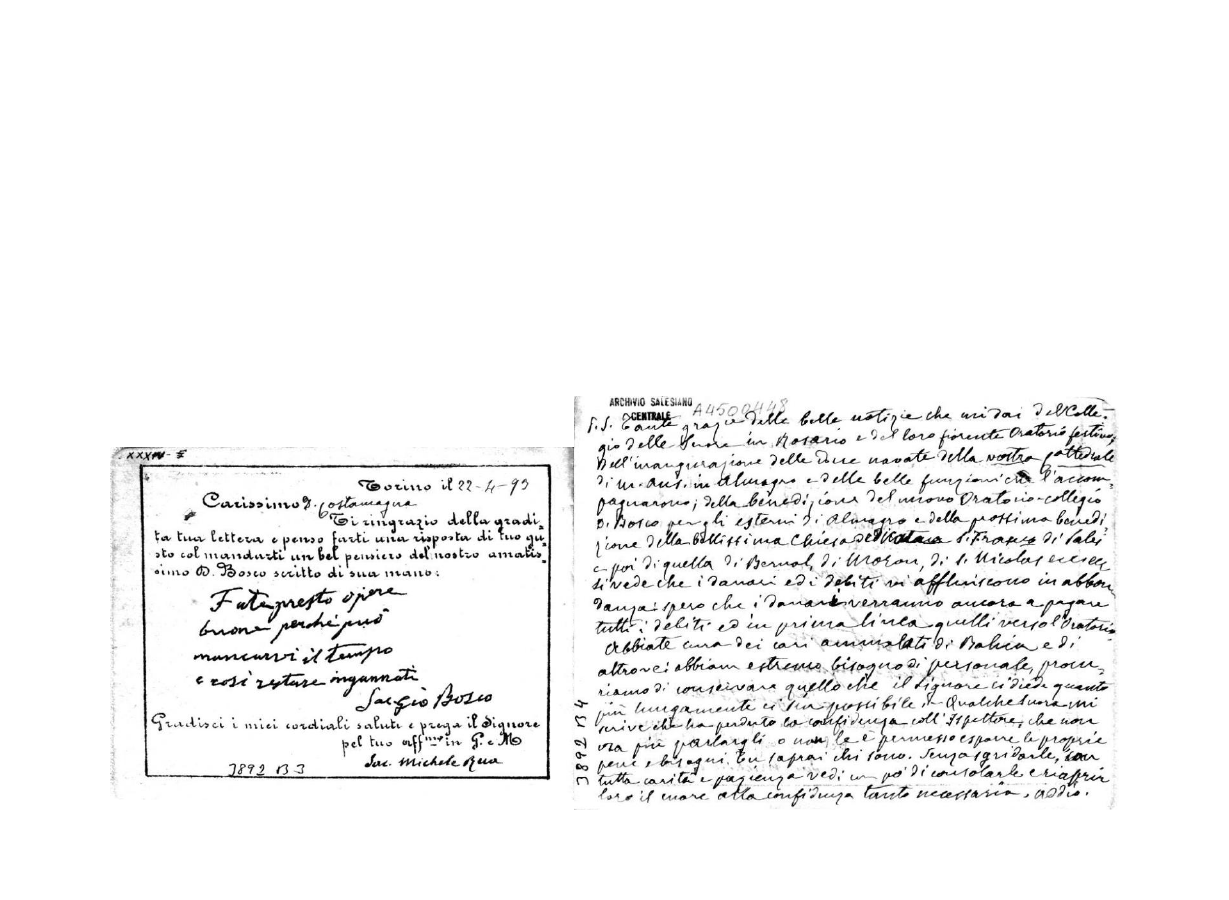 XXXIV-E
Torino il 22-4-93
Carissimo D. Costamagna
Ti ringrazio della gradi-
ta tua lettera e penso farti una risposta di tuo gu-
sto col mandarti un bel pensiero del nostro amatis-
simo D. Bosco scritto di sua mano:
Fate presto opere
buone perché può
mancarvi il tempo
e così restare ingannati
Sac Gio Bosco
Gradisci i miei cordiali saluti e prega il Signore
pel tuo aff.mo in G. e M
Sac. Michele Rua
3892 B 3
ARCHIVIO SALESIANO
CENTRALE
A4500448
P.S. Tante grazie delle belle notizie che mi dai del Colle-
gio delle Suore in Rosario e del loro fiorente Oratorio festivo;
dell'inaugurazione delle due navate della vostra cattedrale
di M. Aus. in Almagro e delle belle funzioni che l'accom-
pagnarono; della benedizione del nuovo Oratorio-collegio
D. Bosco per gli esterni di Almagro e della prossima benedi-
zione della bellissima Chiesa di S. Franco di Sales
e poi di quella di Bernal, di Moron, di S. Nicolas ecc ecc
Si vede che i danari ed i debiti vi affluiscono in abbon
danza: spero che i danari verranno ancora a pagare
tutti i debiti ed in prima linea quelli verso l'Oratorio
Abbiate cura dei cari ammalati di Bahia e di
altrove: abbiam estremo bisogno di personale, procu-
riamo di conservare quello che il Signore ci diede quanto
più lungamente ci sia possibile. - Qualche Suora mi
scrive che ha perduto la confidenza coll'Ispettore, che non
osa più parlargli o non le è permesso esporre le proprie
pene e bisogni. Tu saprai chi sono. Senza sgridarle, con
tutta carità e pazienza vedi un po' di consolarle e riaprir
loro il cuore alla confidenza tanto necessaria. addio.
3892 B 4